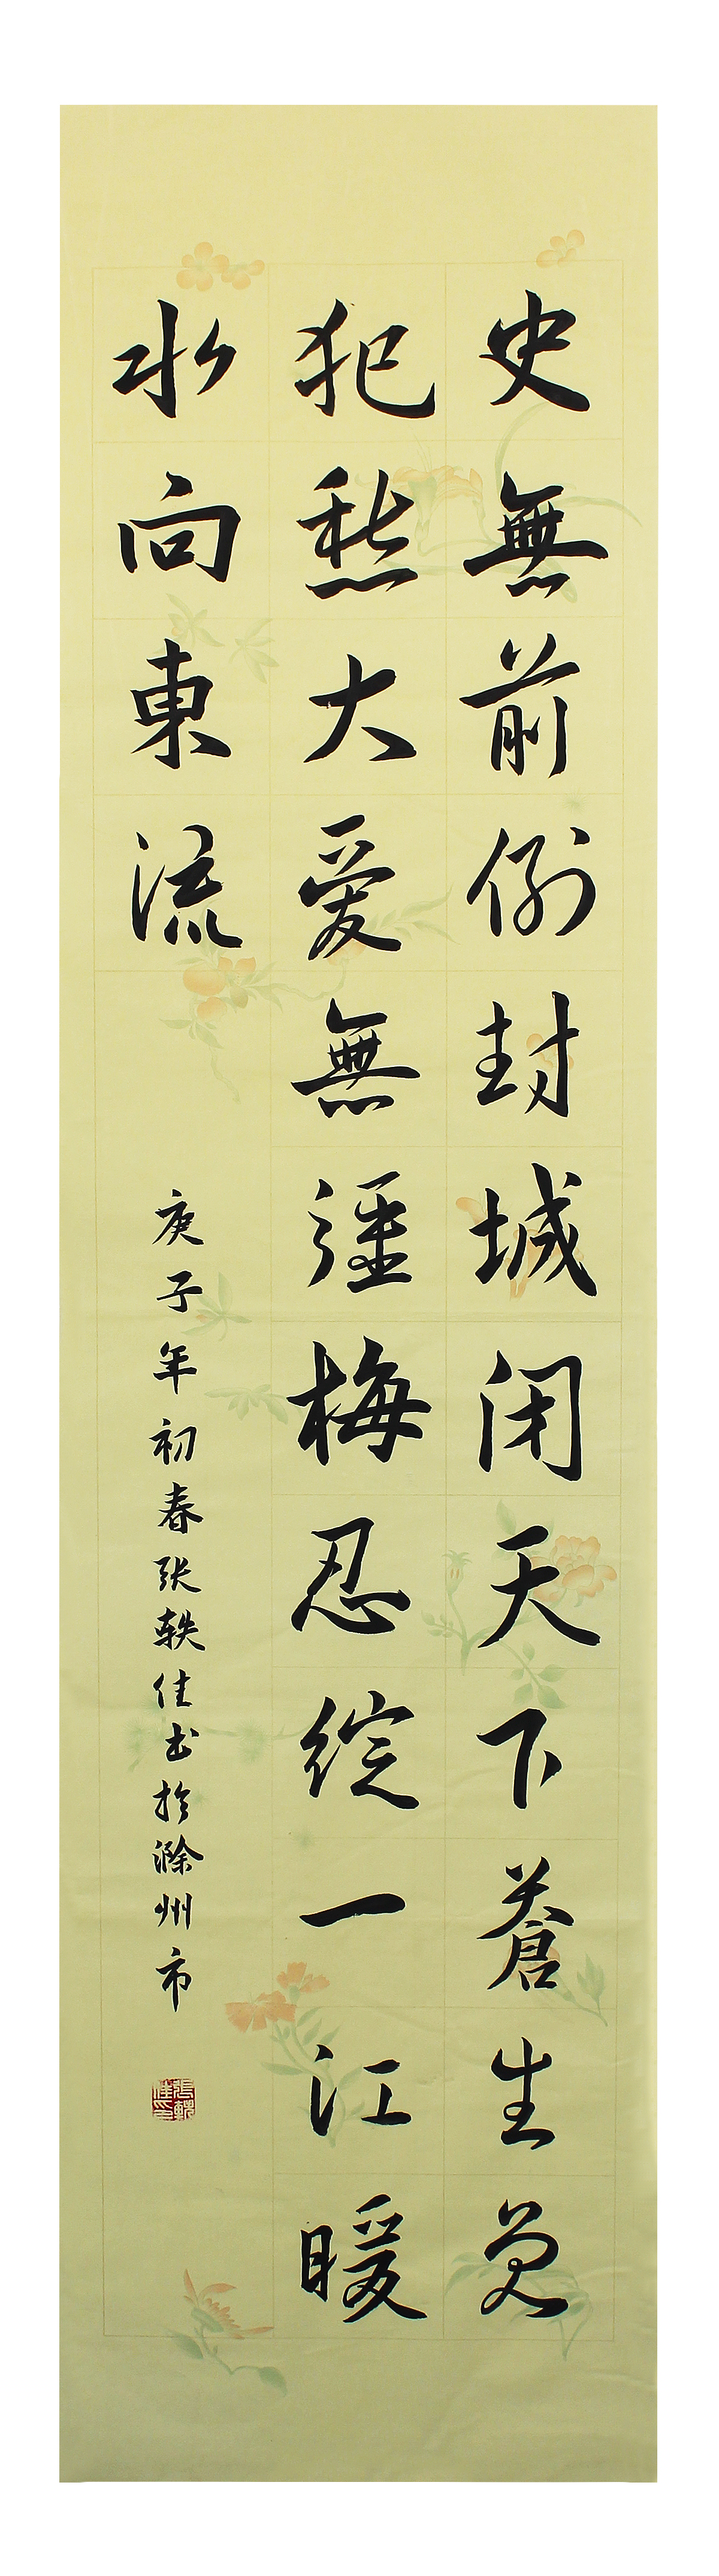 史無前例封城闭天下蒼生免
犯愁大爱無疆梅忍绽一江暖
水向東流
庚子年初春张轶佳书於滁州市
張軼佳印